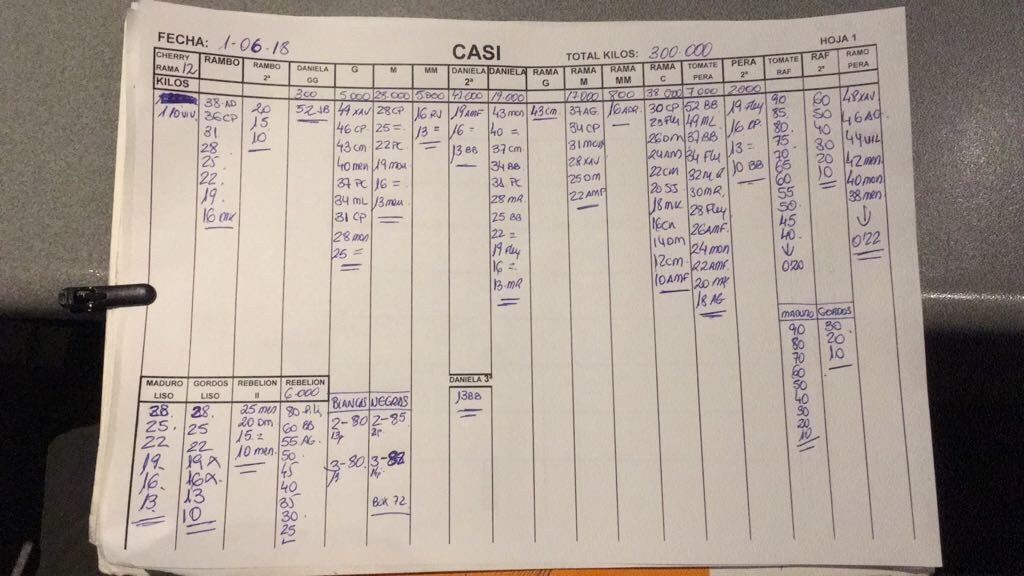 FECHA: 1-06-18
CASI
TOTAL KILOS: 300.000
HOJA 1
CHERRY RAMA 12
RAMBO
RAMBO 2ª
DANIELA GG
G
M
MM
DANIELA 2ª
DANIELA
RAMA G
RAMA M
RAMA MM
RAMA C
TOMATE PERA
PERA 2ª
TOMATE RAF
RAF 2ª
RAMO PERA
KILOS
300
5.000
28.000
5.000
19.000
17.000
800
38.000
7.000
2000
38-AD
36CP
31.
28.
25.
22.
19.
16 MK
20
15
10
52 JB
49 XAV
46 CP
43 cm
40 men
37 PC
34 ML
31 CP
28 mon
25 =
28 CP
25 =
22 PC
19 mon
16 =
13 mon
13 =
19 AMF
16 =
13 BB
43 mon
40 =
37 cm
34 BB
31 PC
28 MR
25 BB
22 =
19 Fly
16 =
13 MR
43 cm
37 AG
34 CP
31 mon
28 XAV
25 DM
22 AMF
30 CP
26 DM
24 AM
22 cm
20 SS
18 MK
14 DM
12 cm
10 AMF
52 BB
49 ML
37 BB
34 Fly
30 MR
28 Fley
26 AMF
24 mon
22 AMF
20 MR
18 AG
19 Fley
16 CP
13 =
10 BB
90
85
80
75
70
65
60
55
50
45
40
↓
0'20
60
50
40
30
20
10
48 XAV
46 AG
42 men
40 mon
38 men
↓
0'22
MADURO
90
80
70
60
50
40
30
20
10
GORDOS
30
20
10
MADURO LISO
28.
25.
22
19.
16.
13.
GORDOS LISO
28.
25
22
19
16
13
10
REBELION II
25 men
20 DM
15 =
10 men
REBELION
6.000
60 BB
55 AG
50
45
40
35
30
25
BLANCOS
2-80
3-80
13
NEGROS
2-85
BOX 72
DANIELA 3ª
13 BB